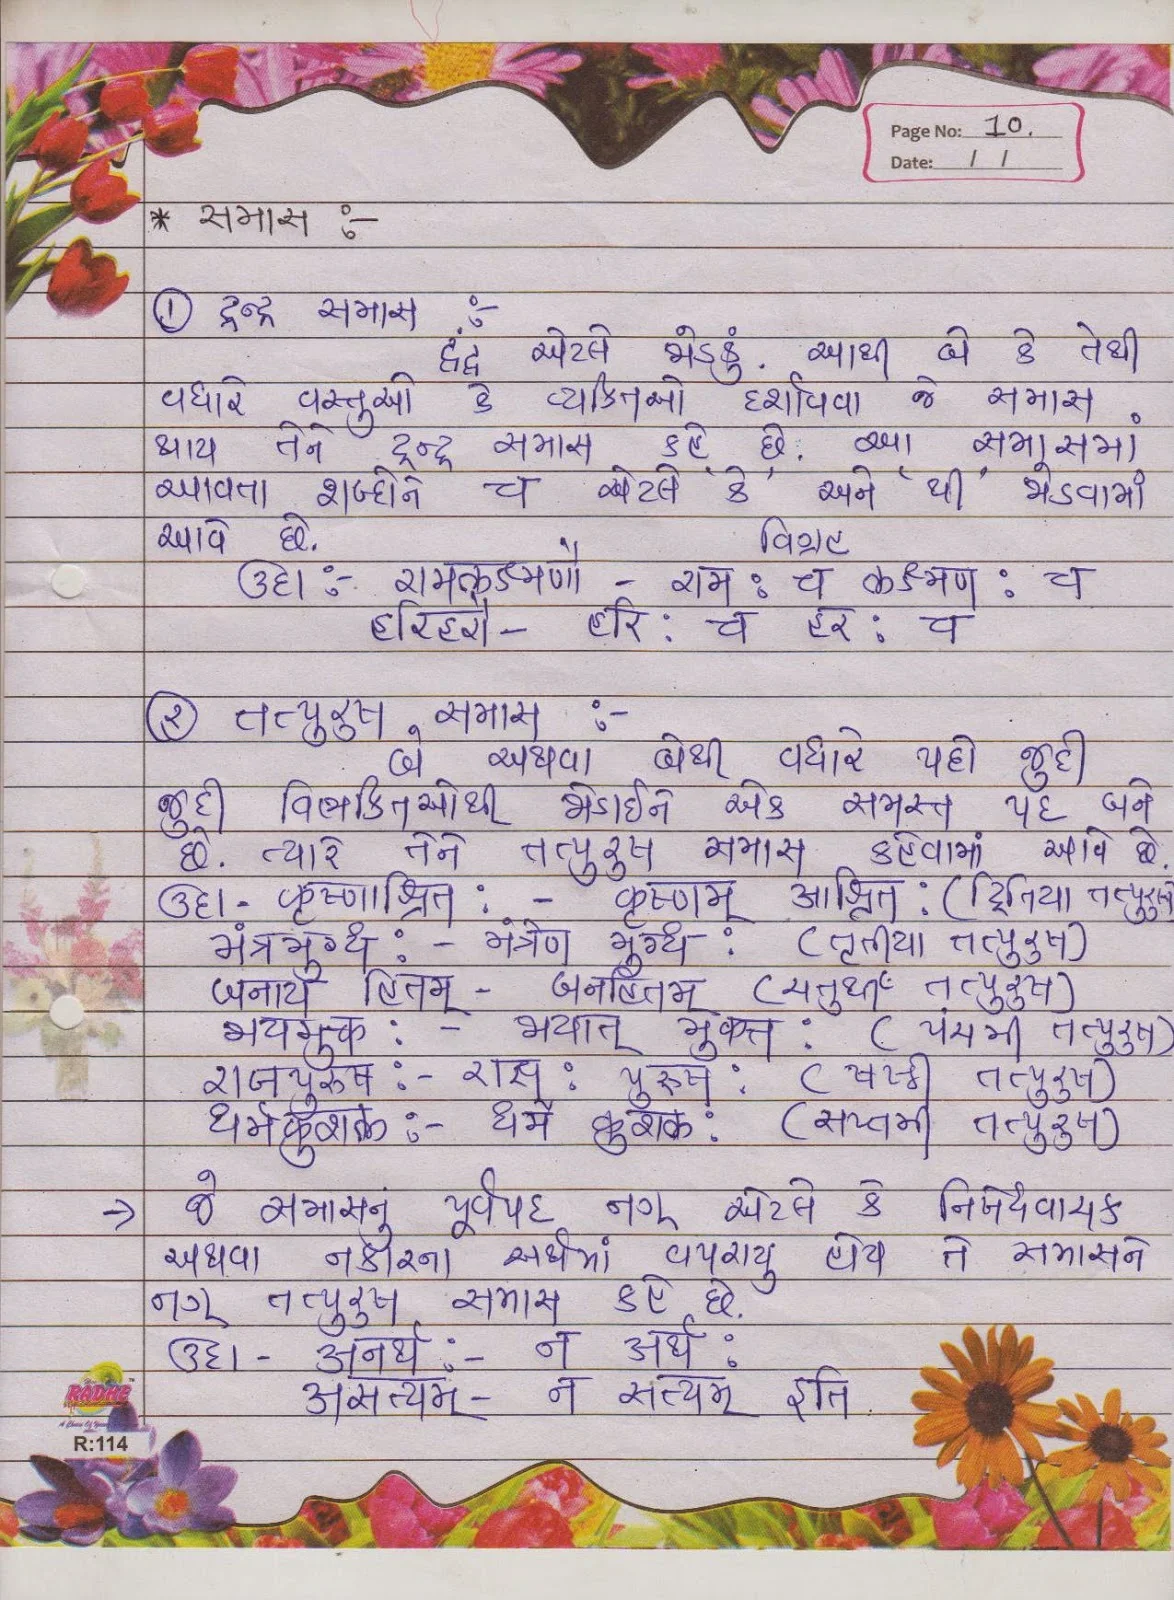 Page No: 10.
Date: / /
* સમાસ :-
① દ્વન્દ્વ સમાસ :-
દ્વંદ્વ એટલે જોડકું. આથી બે કે તેથી
વધારે વસ્તુઓ કે વ્યકિતઓ દર્શાવવા જે સમાસ
થાય તેને દ્વન્દ્વ સમાસ કહે છે. આ સમાસમાં
આવતા શબ્દોને ચ એટલે કે 'અને' થી જોડવામાં
આવે છે.
વિગ્રહ
ઉદા :- રામલક્ષ્મણૌ - રામ: ચ લક્ષ્મણ : ચ
હરિહરૌ - હરિ : ચ હર : ચ
② તત્પુરુષ સમાસ :-
બે અથવા બેથી વધારે પદો જુદી
જુદી વિભકિતઓથી જોડાઈને એક સમસ્ત પદ બને
છે. ત્યારે તેને તત્પુરુષ સમાસ કહેવામાં આવે છે.
ઉદા - કૃષ્ણાશ્રિત : - કૃષ્ણમ્ આશ્રિત : (દ્વિતિયા તત્પુરુષ)
મંત્રમુગ્ધ : - મંત્રેણ મુગ્ધ : (તૃતીયા તત્પુરુષ)
જનાય હિતમ્ - જનહિતમ્ (ચતુર્થી તત્પુરુષ)
ભયમુક્ત : - ભયાત્ મુક્ત : (પંચમી તત્પુરુષ)
રાજપુરુષ :- રાજ્ઞ : પુરુષ : (ષષ્ઠી તત્પુરુષ)
ધર્મકુશલ :- ધર્મે કુશલ : (સપ્તમી તત્પુરુષ)
→ જે સમાસનું પૂર્વપદ નઞ્ એટલે કે નિષેધવાચક
અથવા નકારના અર્થમાં વપરાયુ હોય તે સમાસને
નઞ્ તત્પુરુષ સમાસ કહે છે.
ઉદા - अनर्थ :- न अर्थ :
असत्यम् - न सत्यम् इति
RADHE
R:114